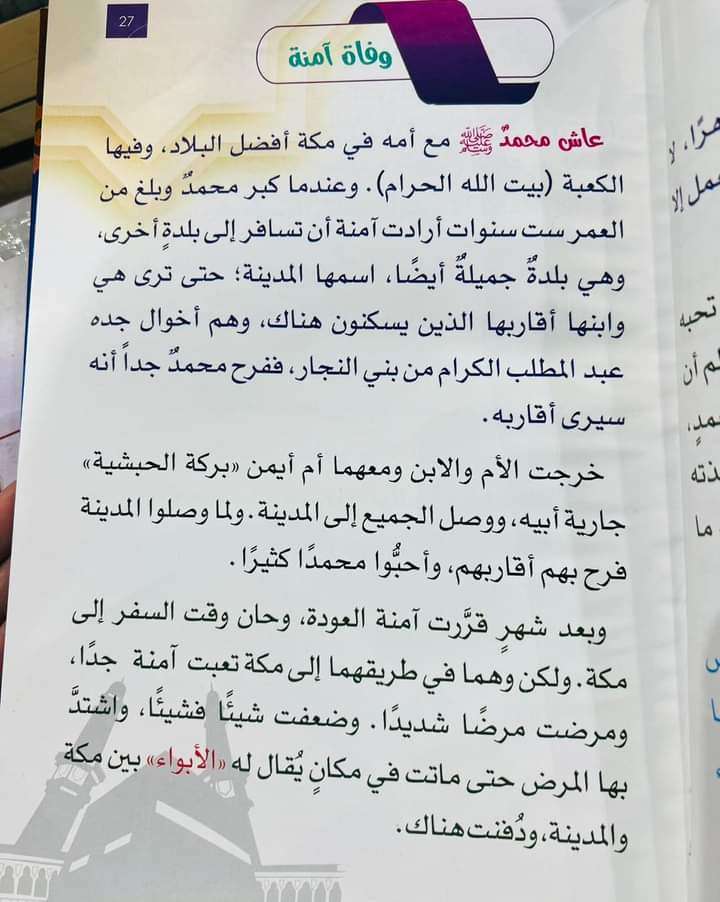 27
وفاة آمنة
عاش محمدٌ ﷺ مع أمه في مكة أفضل البلاد، وفيها
الكعبة (بيت الله الحرام). وعندما كبر محمدٌ وبلغ من
العمر ست سنوات أرادت آمنة أن تسافر إلى بلدةٍ أخرى،
وهي بلدةٌ جميلةٌ أيضًا، اسمها المدينة؛ حتى ترى هي
وابنها أقاربها الذين يسكنون هناك، وهم أخوال جده
عبد المطلب الكرام من بني النجار، ففرح محمدٌ جداً أنه
سيرى أقاربه.
خرجت الأم والابن ومعهما أم أيمن «بركة الحبشية»
جارية أبيه، ووصل الجميع إلى المدينة. ولما وصلوا المدينة
فرح بهم أقاربهم، وأحبُّوا محمدًا كثيرًا.
وبعد شهرٍ قرَّرت آمنة العودة، وحان وقت السفر إلى
مكة. ولكن وهما في طريقهما إلى مكة تعبت آمنة جدًا،
ومرضت مرضًا شديدًا. وضعفت شيئًا فشيئًا، واشتدَّ
بها المرض حتى ماتت في مكانٍ يُقال له «الأبواء» بين مكة
والمدينة، ودُفنت هناك.
تحبه
ما